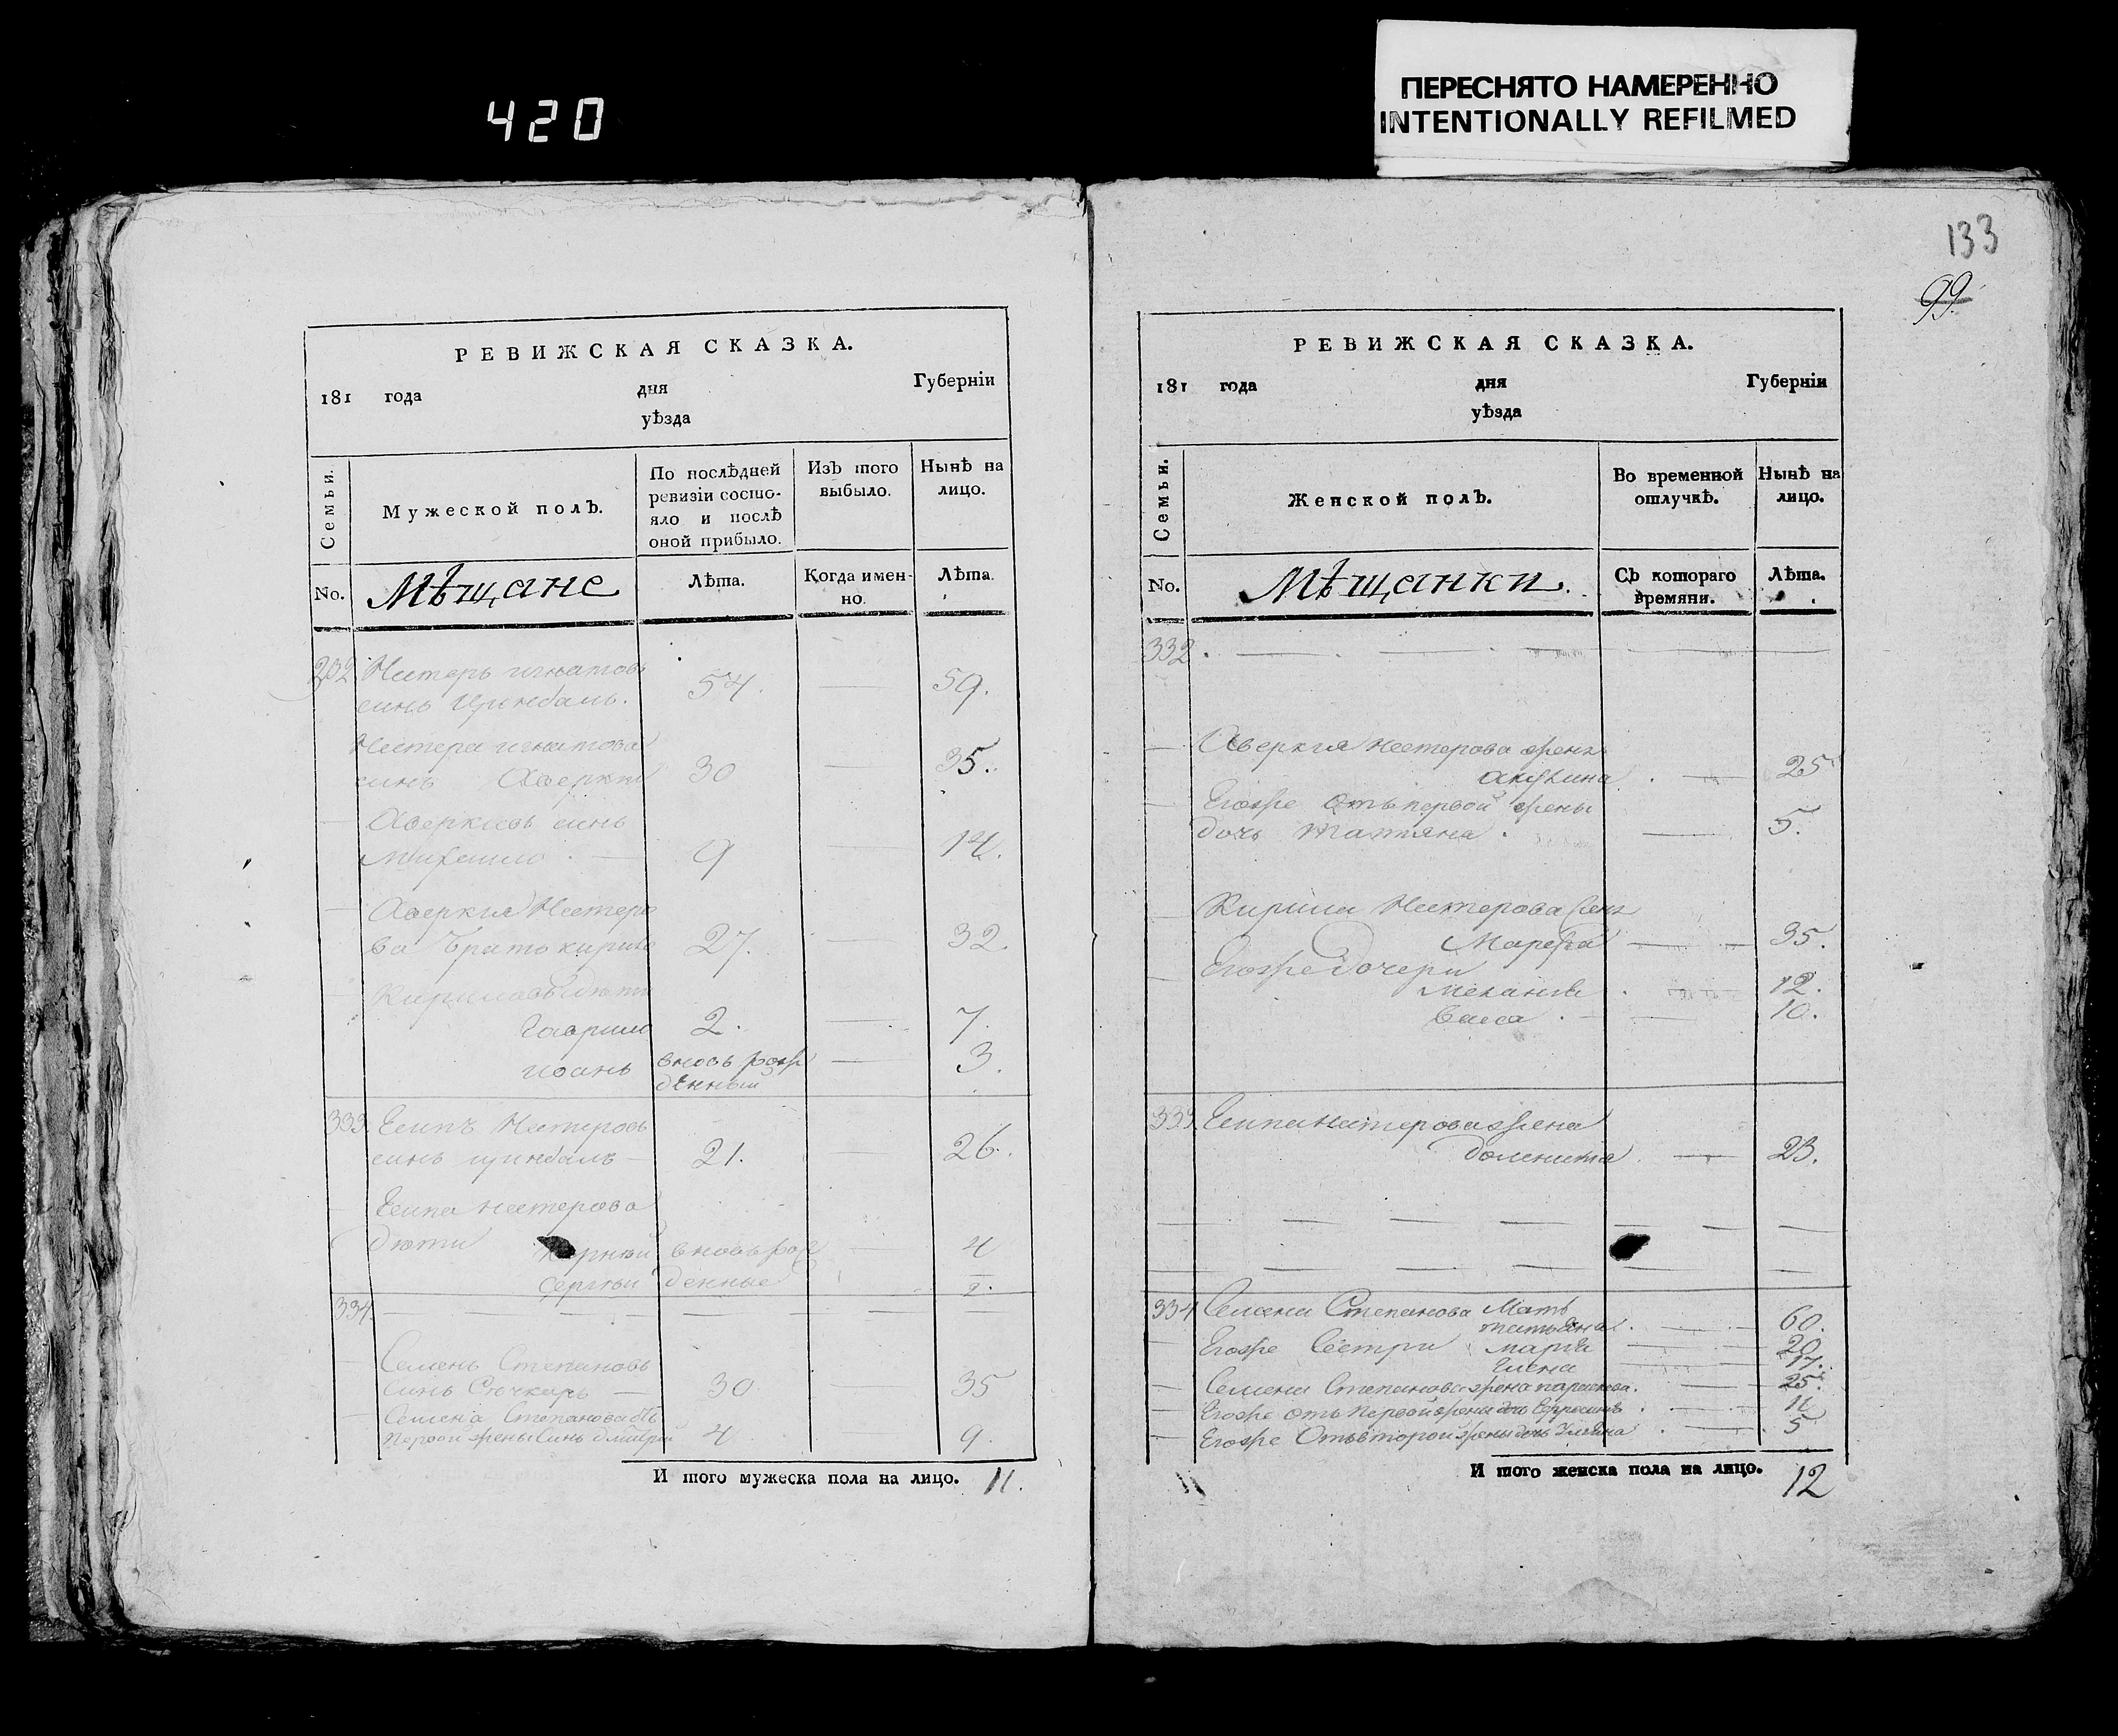 420
ПЕРЕСНЯТО НАМЕРЕННО
INTENTIONALLY REFILMED
133
99.
РЕВИЖСКАЯ СКАЗКА.
181 года дня Губерніи
уѣзда
Семьи.
Мужеской полЪ.
По послѣдней
ревизіи состо-
яло и послѣ
оной прибыло.
ИзЪ того
выбыло.
Нынѣ на
лицо.
No.
Мѣщане
Лѣта.
Когда имен-
но.
Лѣта.
Нестеръ игнатовъ
синъ Цимбалъ. 54. 59.
Нестера игнатова
синъ Аверки 30 35.
Аверкиевъ синъ
Михаило 9 14.
Аверкия Нестеро
ва братъ кирило 27. 32.
Кириловы дѣти
Гаврило 2. 7.
иоанъ вновь рож 3.
денный
333. Есипъ Нестеровъ
синъ цимбалъ 21. 26.
Есипа нестерова
дѣти вновь рож 4
Сергѣй денные 2.
334
Семенъ Степановъ
синъ 30 35
Семена Степанова отъ
первой жены синъ дмитрій 4 9.
И того мужеска пола на лицо. 11.
РЕВИЖСКАЯ СКАЗКА.
181 года дня Губерніи
уѣзда
Семьи.
Женской полЪ.
Во временной
отлучкѣ.
Нынѣ на
лицо.
No.
Мѣщанки.
СЪ котораго
времяни.
Лѣта.
332.
Аверкия нестерова жена
акулина 25
Егожѣ отъ первой жены
дочь татияна. 5.
Кирила Нестерова жена
Марфа 35.
Егожѣ дочери
Меланія 12.
Васса 10.
333 Есипа нестерова жена
домникия 23.
334 Семена Степанова мать
татьяна. 60.
Егожѣ Сестри марія 20
Елена 17.
Семена Степанова жена параскева. 25.
Егожѣ отъ первой жены дочь Ефросинія 11
Егожѣ Отъ второй жены дочь 5
И того женска пола на лицо. 12